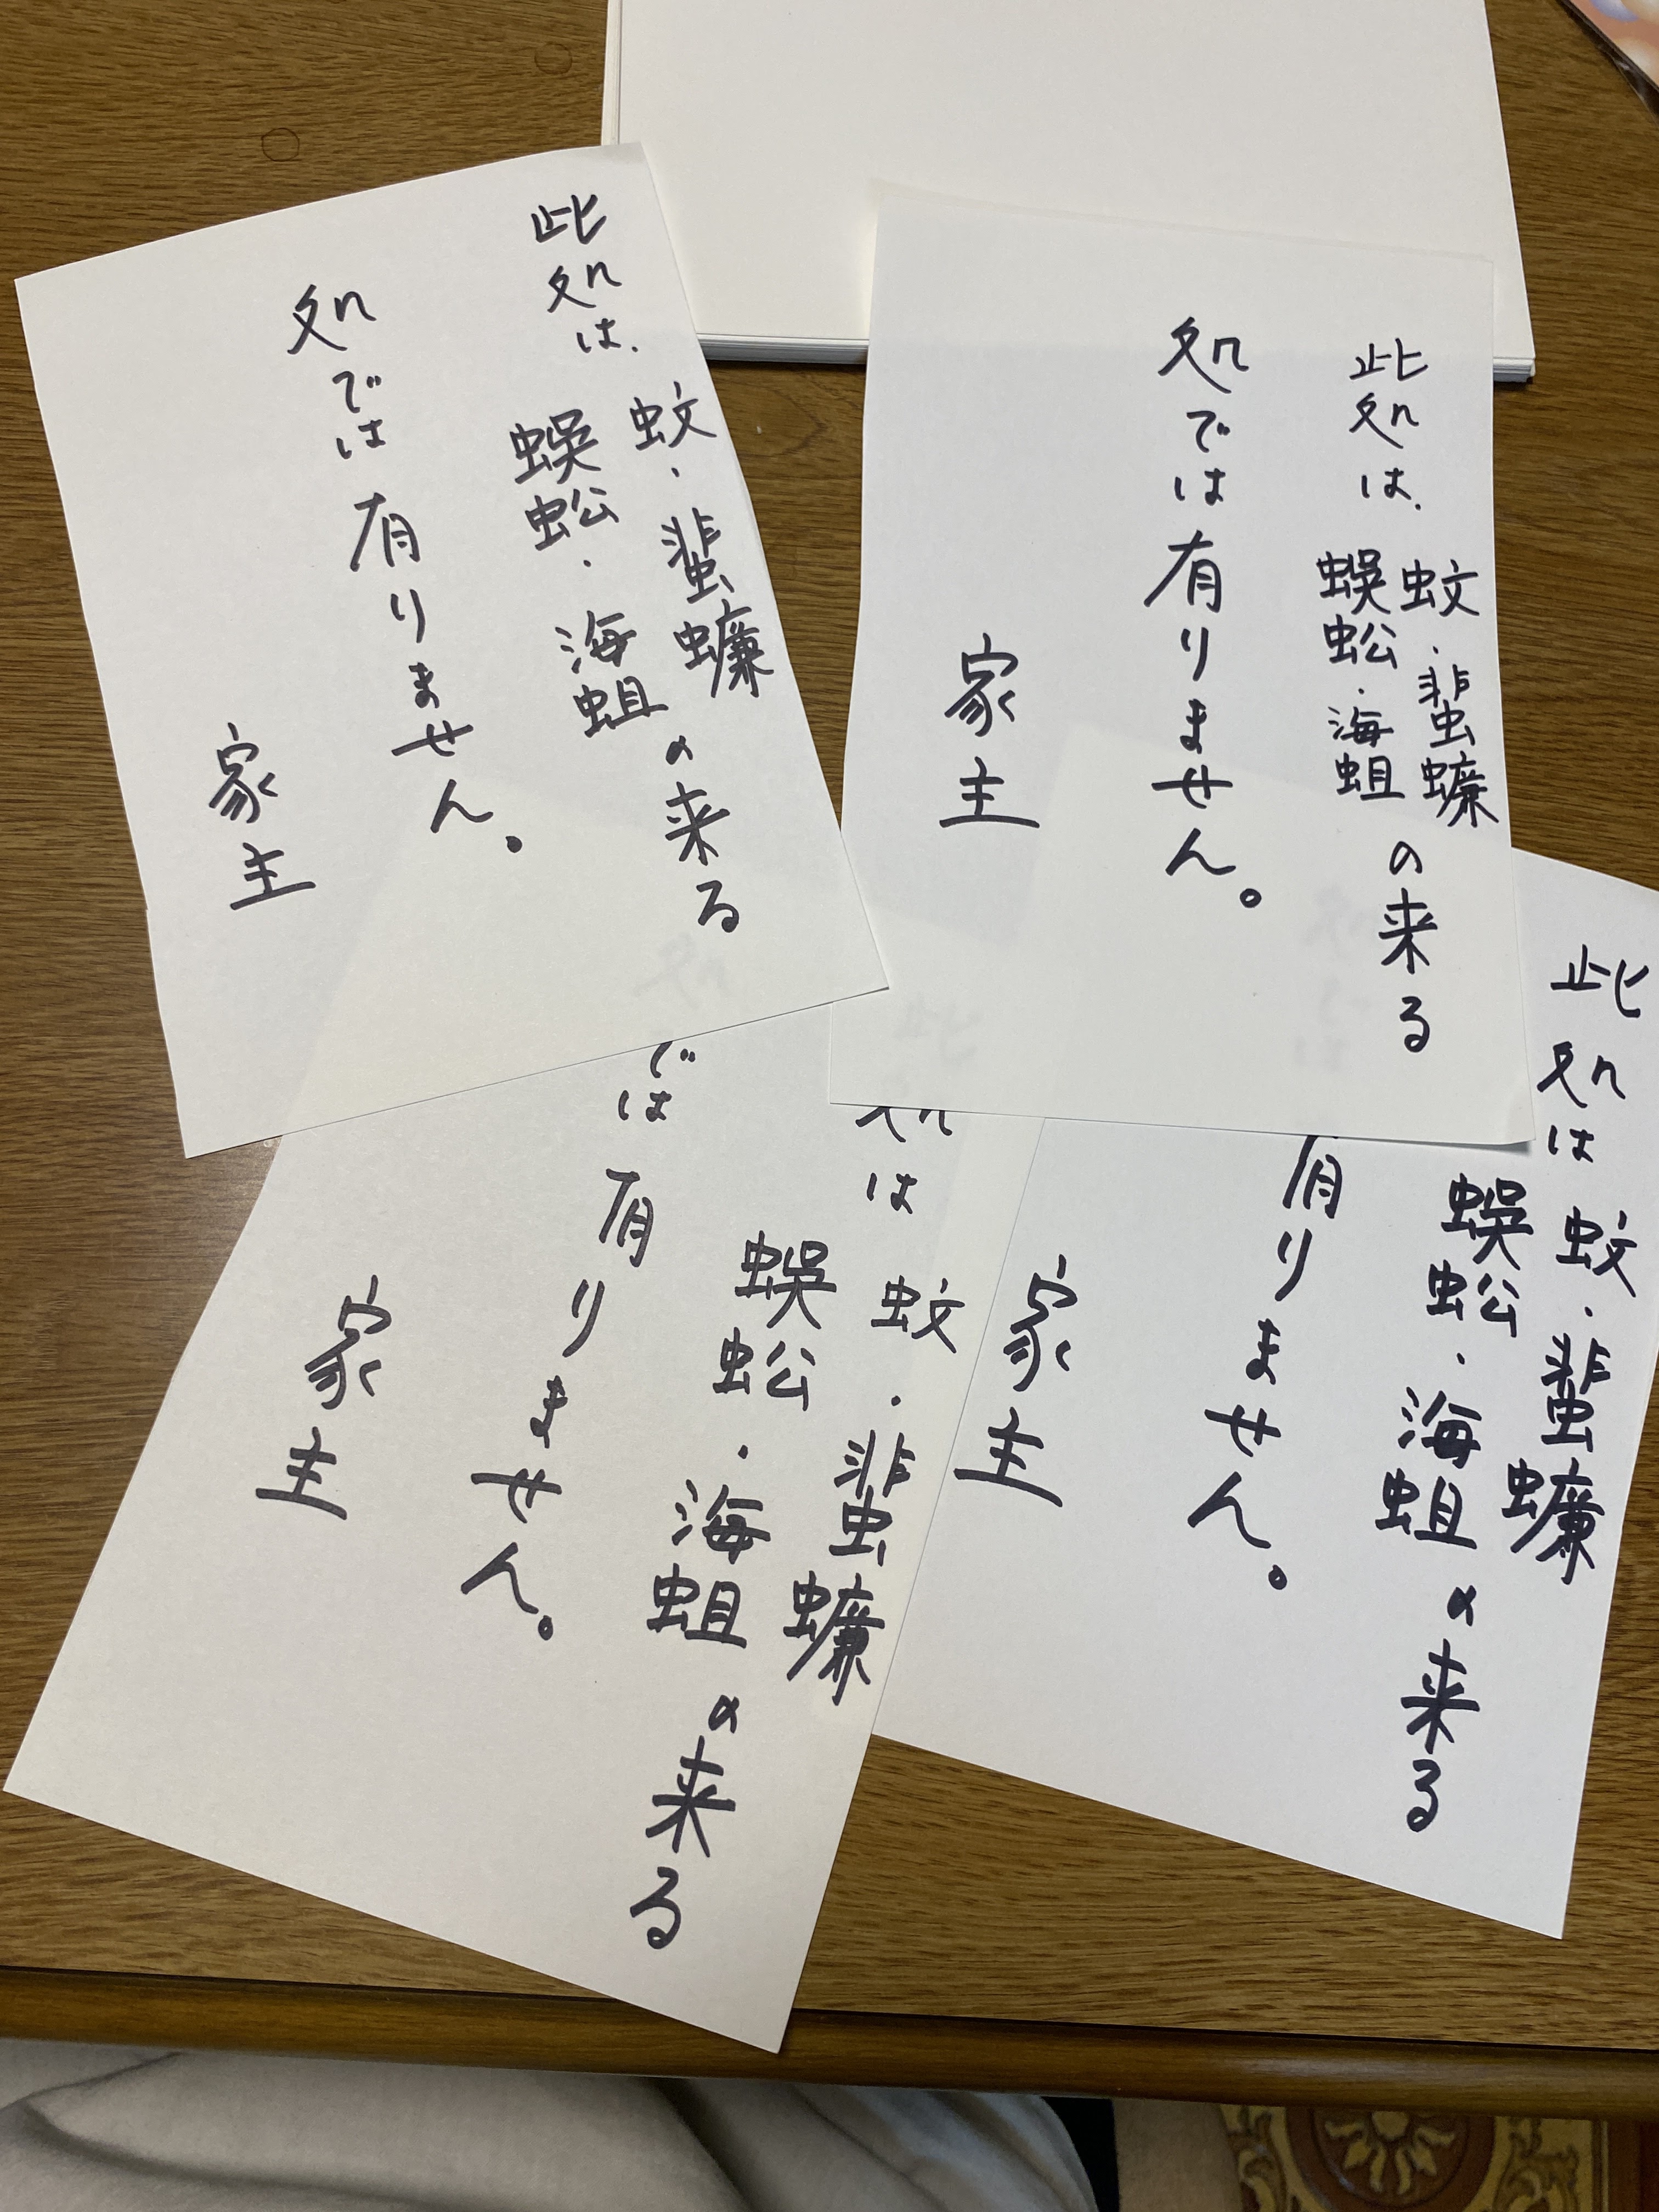 此処は、蚊・蜚蠊
蜈蚣・海蛆の来る
処では有りません。
家主
此処は、蚊・蜚蠊
蜈蚣・海蛆の来る
処では有りません。
家主
処は蚊・蜚蠊
蜈蚣・海蛆の来る
では有りません。
家主
此処は蚊・蜚蠊
蜈蚣・海蛆の来る
有りません。
家主